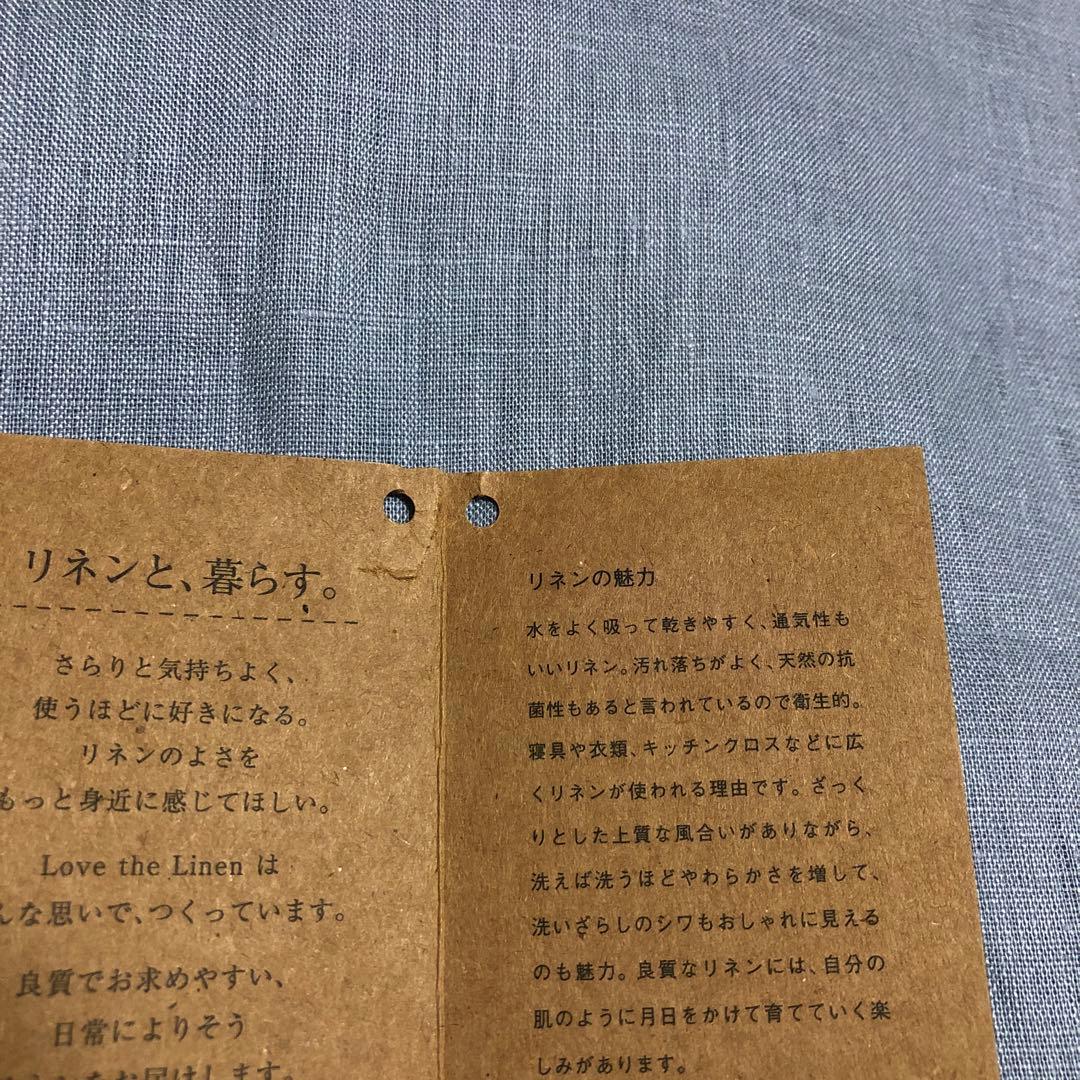 リネンと、暮らす。
さらりと気持ちよく、
使うほどに好きになる。
リネンのよさを
もっと身近に感じてほしい。
Love the Linen は
んな思いで、つくっています。
良質でお求めやすい、
日常によりそう
をお届けします。
リネンの魅力
水をよく吸って乾きやすく、通気性も
いいリネン。汚れ落ちがよく、天然の抗
菌性もあると言われているので衛生的。
寝具や衣類、キッチンクロスなどに広
くリネンが使われる理由です。ざっく
りとした上質な風合いがありながら、
洗えば洗うほどやわらかさを増して、
洗いざらしのシワもおしゃれに見える
のも魅力。良質なリネンには、自分の
肌のように月日をかけて育てていく楽
しみがあります。